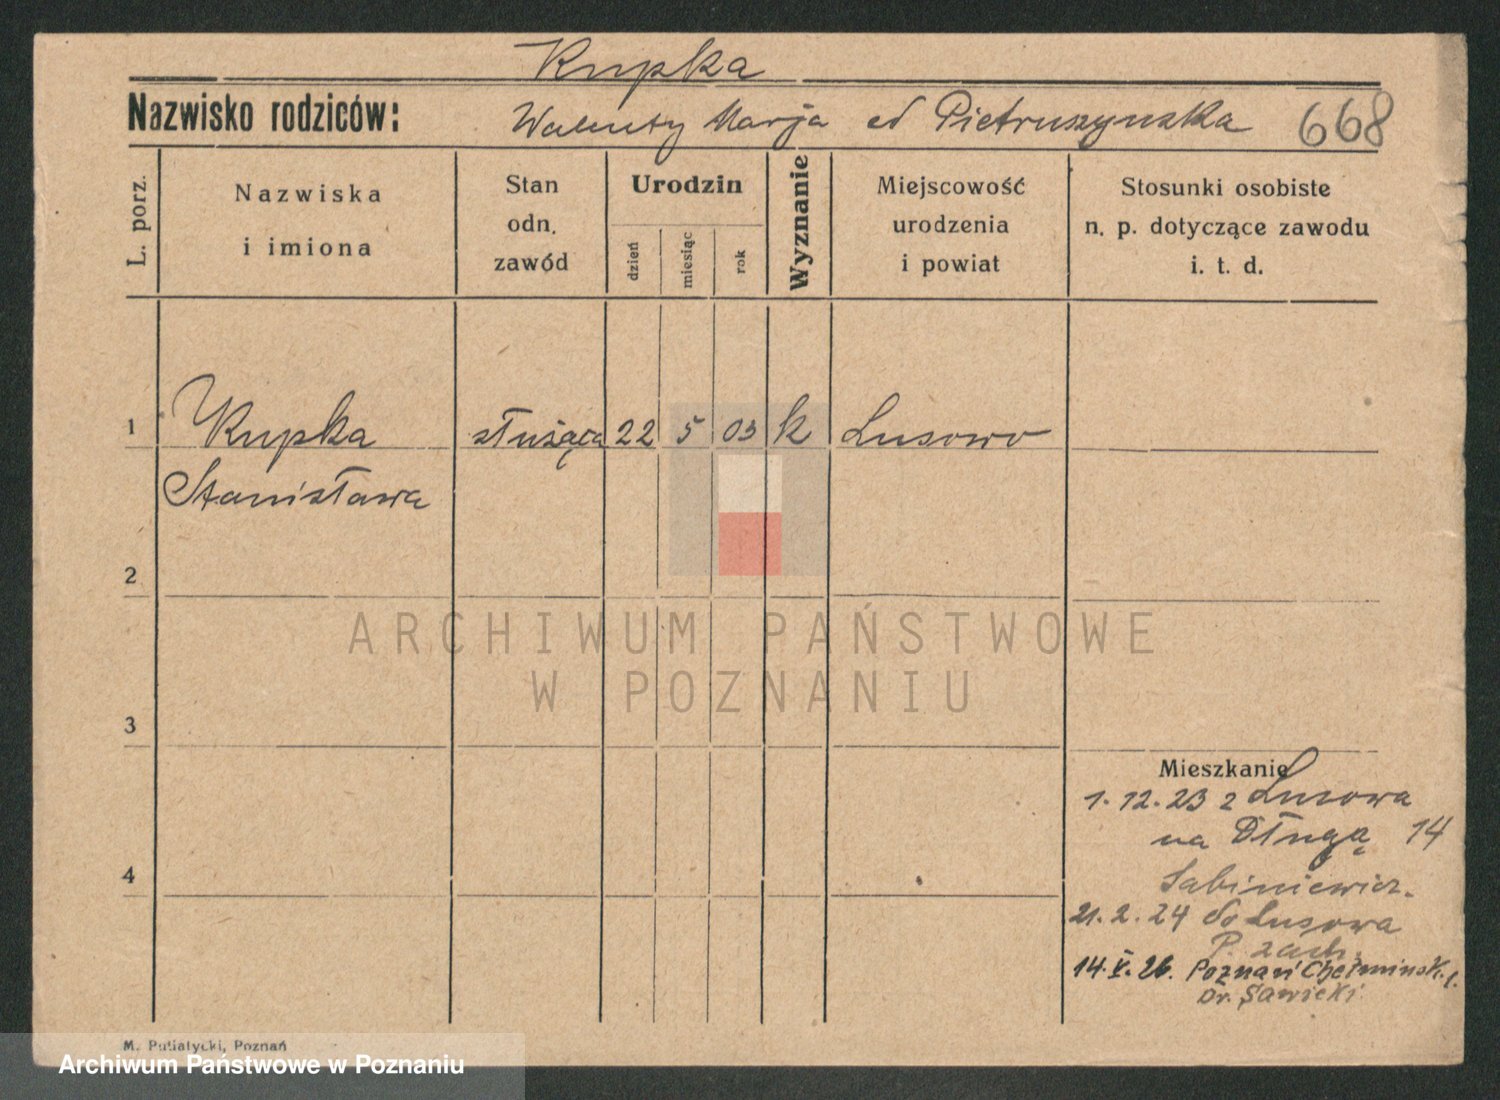 Kupka
Nazwisko rodziców: Walenty Marja ed Pietruszynska 668
L. porz.
Nazwiska
i imiona
Stan
odn.
zawód
Urodzin
dzień
miesiąc
rok
Wyznanie
Miejscowość
urodzenia
i powiat
Stosunki osobiste
n. p. dotyczące zawodu
i. t. d.
1 Kupka służąca 22 5 03 k Lusowo
Stanisława
2
3
4
Mieszkanie
1.12.23 z Lusowa
na Długą 14
Sabiniewicz.
21.2.24 do Lusowa
P. zach.
14.V.26. Poznań Chełmińsk. 1.
Dr. Sawicki
ARCHIWUM PAŃSTWOWE
W POZNANIU
M. Putiatycki, Poznań
Archiwum Państwowe w Poznaniu